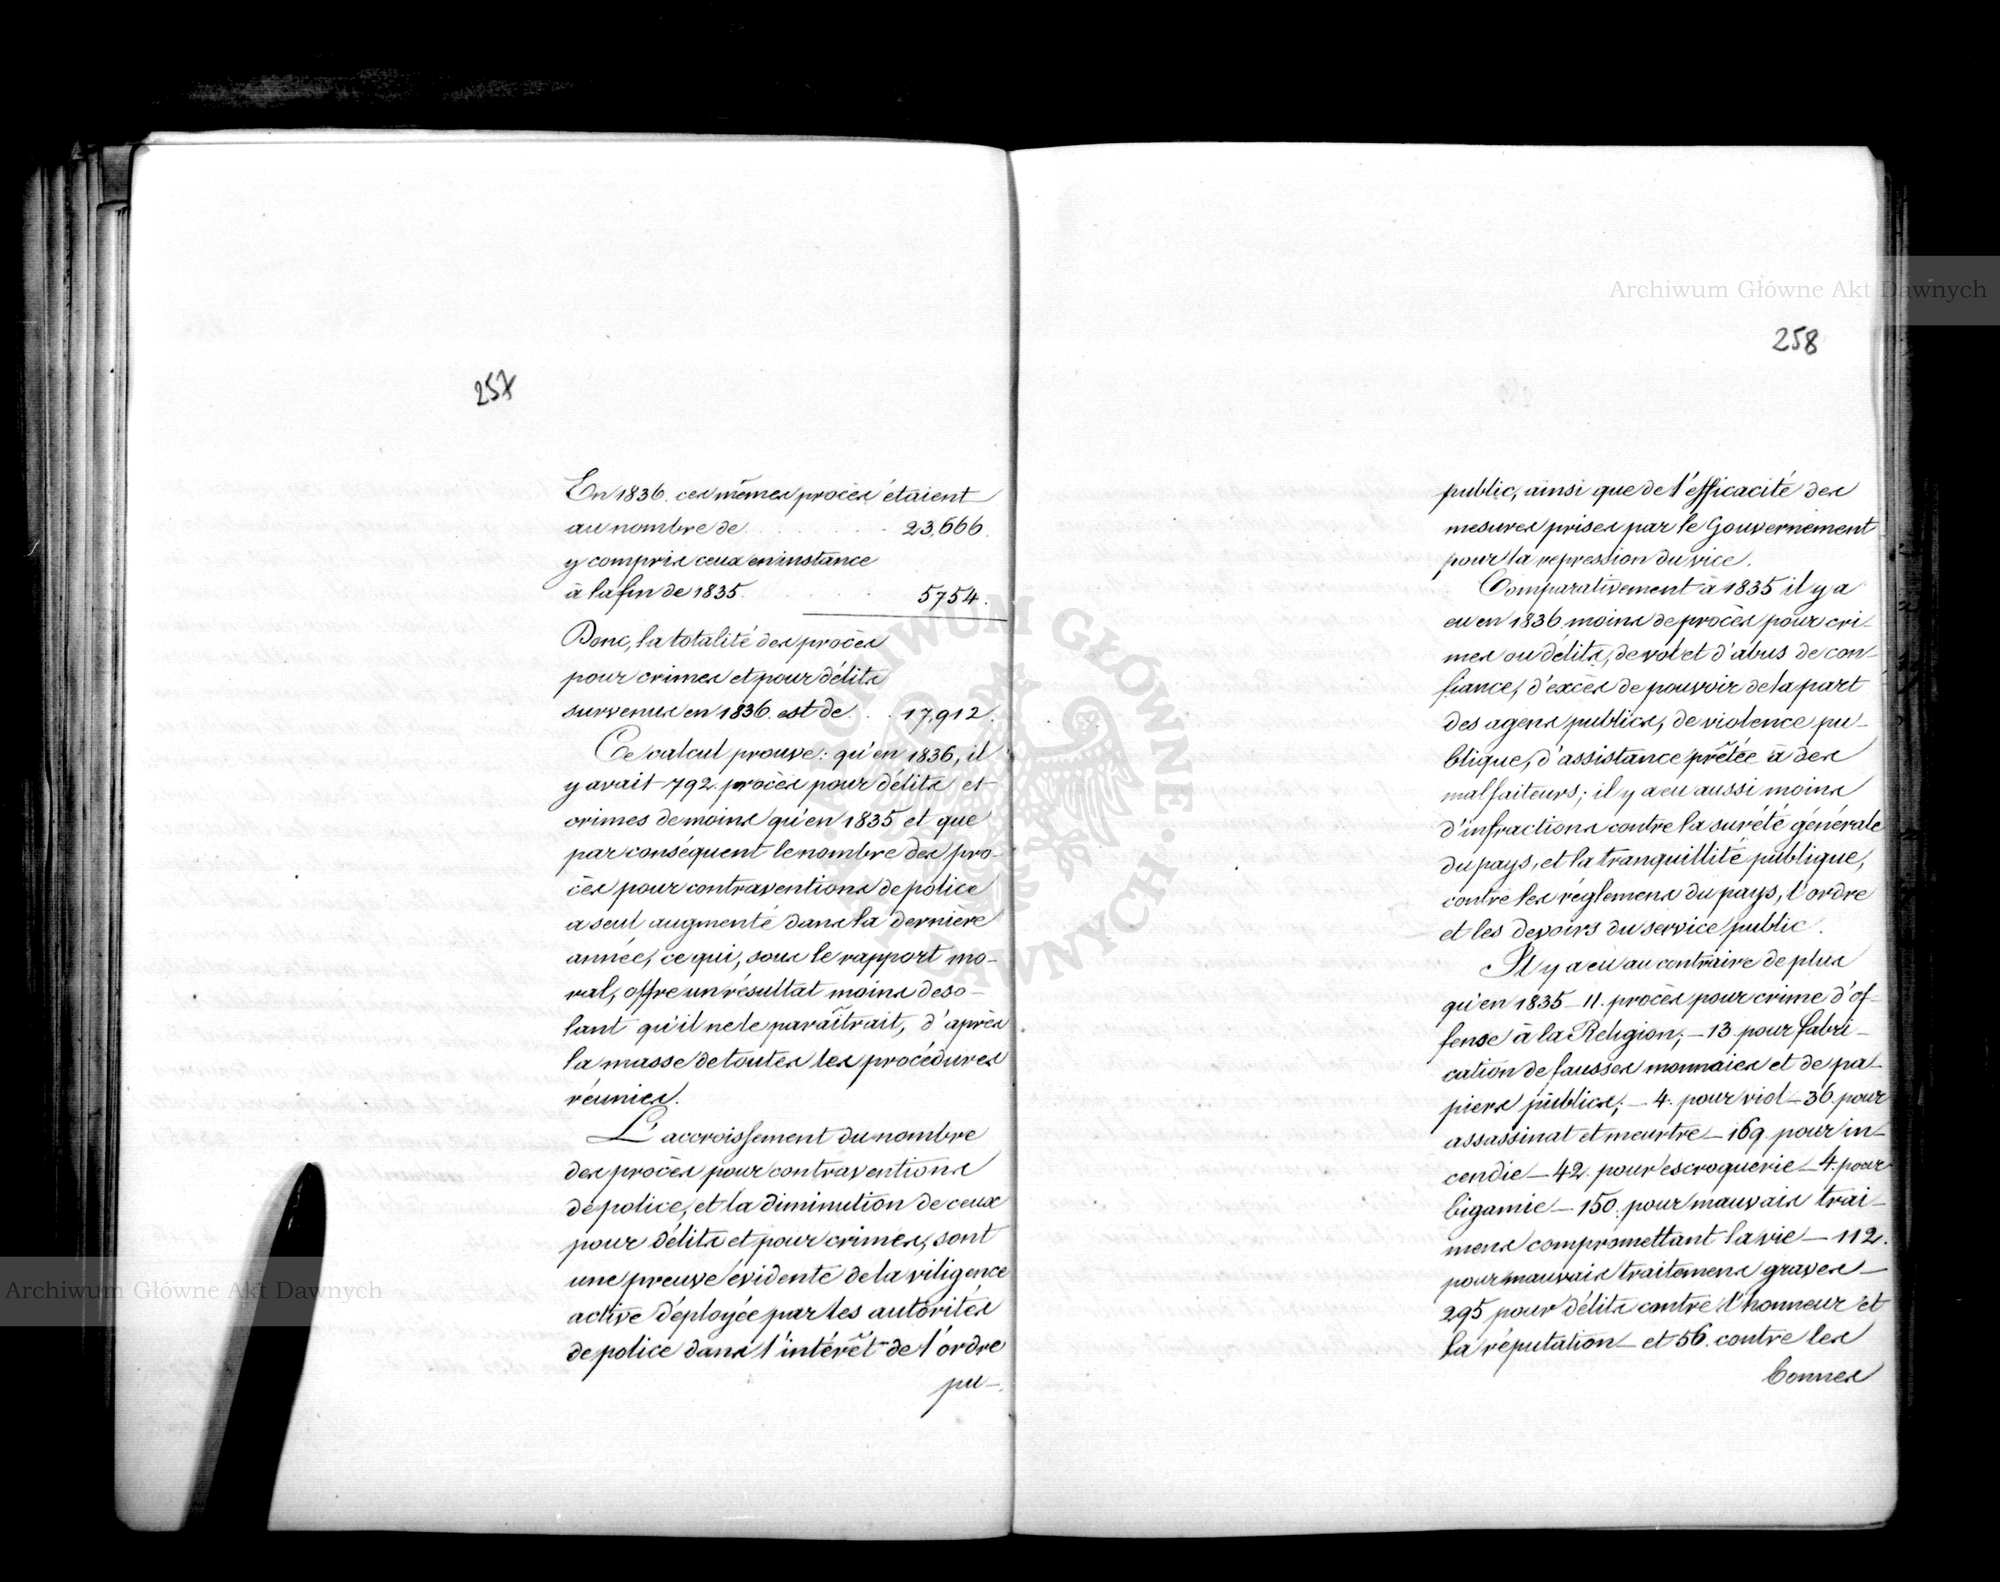 257
En 1836. ces mêmes procès étaient
au nombre de . . . . 23,666.
y compris ceux en instance
à la fin de 1835. . . . 5754.
Donc, la totalité des procès
pour crimes et pour délits
survenus en 1836. est de . . 17,912.
Ce calcul prouve: qu'en 1836, il
y avait 792. procès pour délits et
crimes de moins qu'en 1835 et que
par conséquent le nombre des pro-
cès pour contraventions de police
a seul augmenté dans la dernière
année, ce qui, sous le rapport mo-
ral, offre un résultat moins deso-
lant qu'il ne le paraîtrait, d'après
la masse de toutes les procédures
réunies.
L'accroissement du nombre
des procès pour contraventions
de police, et la diminution de ceux
pour délits et pour crimes, sont
une preuve évidente de la viligence
active déployée par les autorités
de police dans l'intérêt de l'ordre
pu-
258
public, ainsi que de l'efficacité des
mesures prises par le Gouvernement
pour la repression du vice.
Comparativement à 1835 il y a
eu en 1836. moins de procès pour cri-
mes ou délits, de vol et d'abus de con-
fiance, d'excès de pouvoir de la part
des agens publics, de violence pu-
blique, d'assistance prêtée à des
malfaiteurs; il y a eu aussi moins
d'infractions contre la sureté générale
du pays, et la tranquillité publique,
contre les réglemens du pays, l'ordre
et les devoirs du service public.
Il y a eu au contraire de plus
qu'en 1835 - 11. procès pour crime d'of-
fense à la Religion; - 13. pour fabri-
cation de fausses monnaies et de pa-
piers publics; - 4. pour viol - 36. pour
assassinat et meurtre - 169. pour in-
cendie - 42. pour escroquerie - 4. pour
bigamie - 150. pour mauvais trai-
mens compromettant la vie - 112.
pour mauvais traitemens graves -
295 pour délits contre l'honneur et
la réputation - et 56. contre les
bonnes
Archiwum Główne Akt Dawnych
Archiwum Główne Akt Dawnych
ARCHIWUM GŁÓWNE AKT DAWNYCH